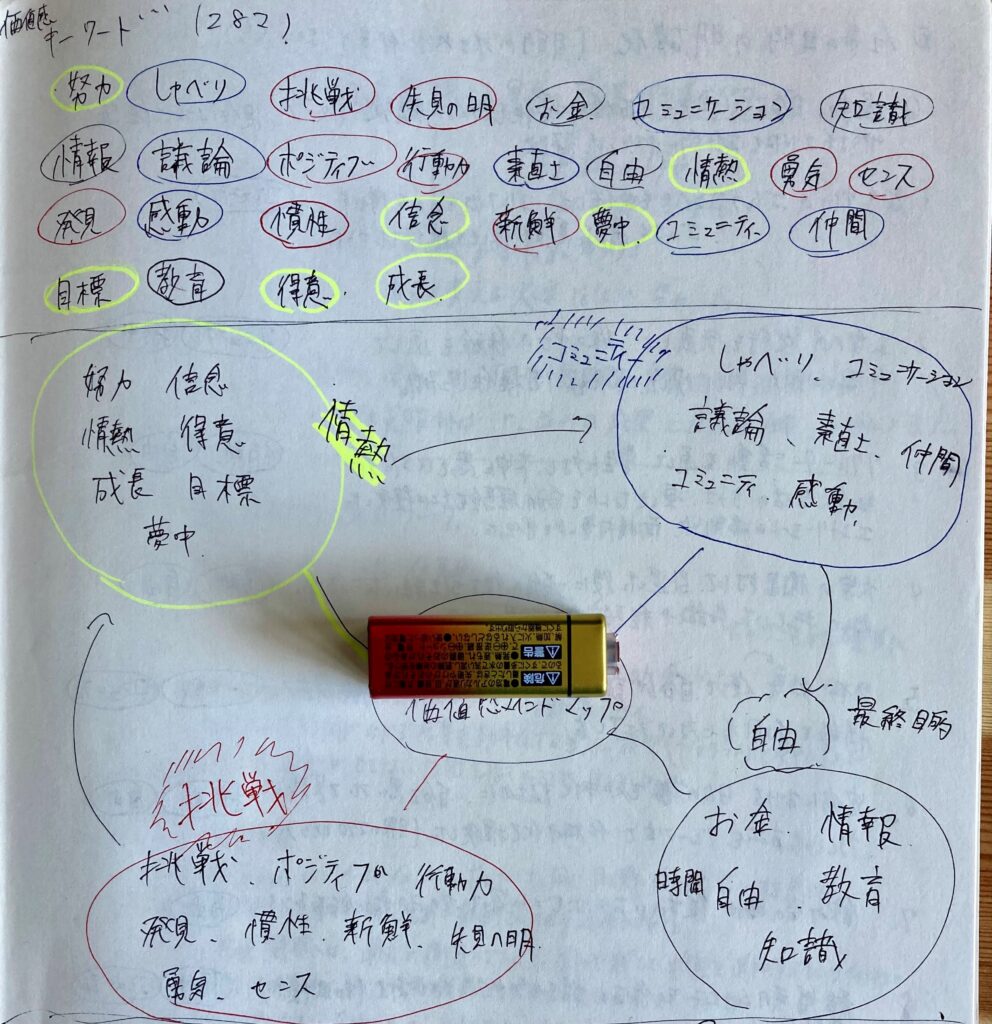 価値感
キーワード…
努力 しゃべり 挑戦 先見の明 お金 コミュニケーション 知識
情報 議論 ポジティブ 行動力 素直さ 自由 情熱 勇気 センス
発見 感動 慣性 信念 新鮮 夢中 コミュニティ 仲間
目標 教育 得意 成長
努力 信念
情熱 得意
成長 目標
夢中
情熱
コミュニティー
しゃべり、コミュニケーション
議論、素直さ、仲間
コミュニティ 感動
警告
危険
価値感マインドマップ
自由
最終目的
挑戦
挑戦、ポジティブ 行動力
発見、慣性、新鮮、先見の明
勇気、センス
お金 情報
時間 自由、教育
知識